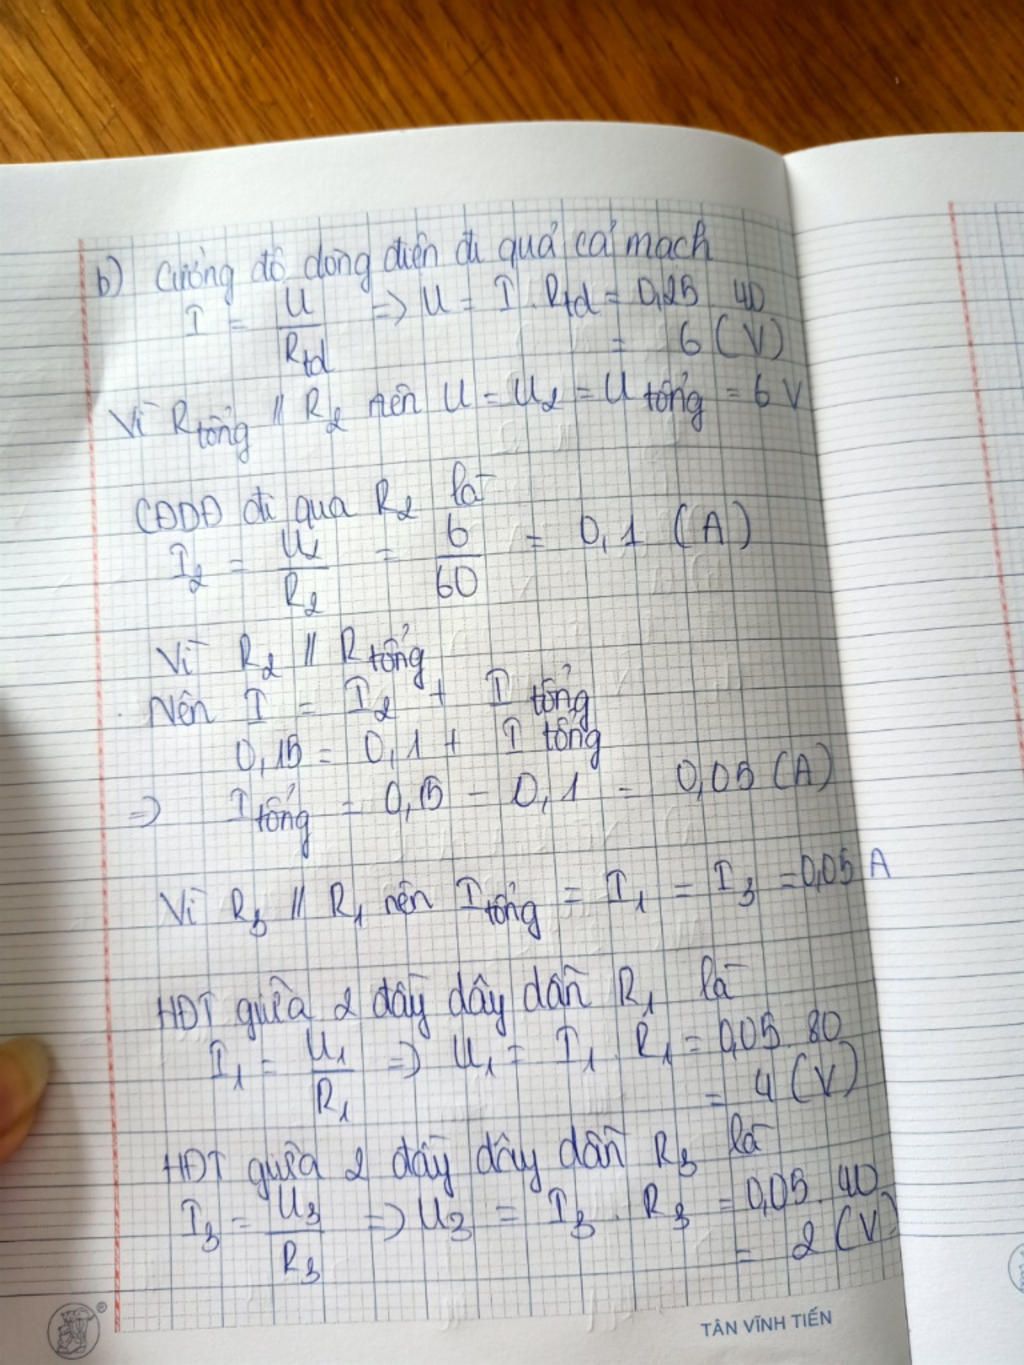 b) Cường độ dòng điện đi quả cả mạch
I = U/Rtđ => U = I . Rtđ = 0,25 . 40
= 6 (V)
Vì Rtổng // R2 nên U = U2 = U tổng = 6 V
CĐDĐ đi qua R2 là
I2 = U2/R2 = 6/60 = 0,1 (A)
Vì R2 // Rtổng
Nên I = I2 + I tổng
0,15 = 0,1 + I tổng
=> I tổng = 0,15 - 0,1 = 0,05 (A)
Vì R3 // R1 nên Itổng = I1 = I3 = 0,05 A
HĐT giữa 2 đầy dây dẫn R1 là
I1 = U1/R1 => U1 = I1 . R1 = 0,05 . 80
= 4 (V)
HĐT giữa 2 đầy dây dẫn R3 là
I3 = U3/R3 => U3 = I3 . R3 = 0,05 . 40
= 2 (V)
TÂN VĨNH TIẾN